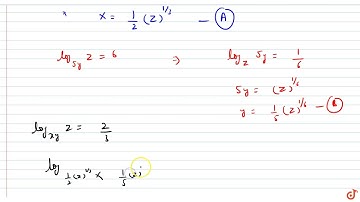 x = 1/2 (z)^1/3 — (A)
log_5y z = 6 ⇒ log_z 5y = 1/6
5y = (z)^1/6
y = 1/5 (z)^1/6 — (B)
log_xy z = 2/3
log_1/2(z)^1/3 × 1/5(z)